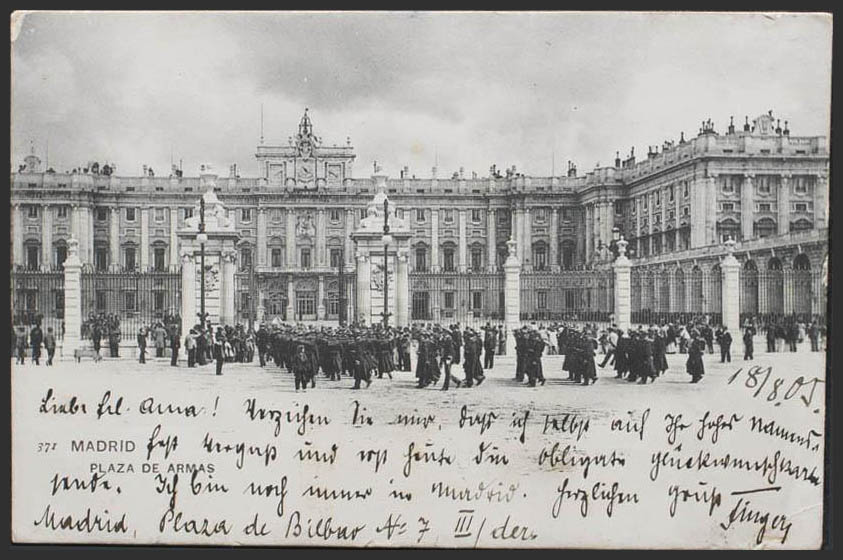 18/8.05.
Liebe Frl. Anna! Verzeihen Sie mir, daß ich selbst auf Ihr hohes Namens-
371 MADRID fest vergaß und erst heute die obligate Glückwunschkarte
PLAZA DE ARMAS
sende. Ich bin noch immer in Madrid. Herzlichen Gruß
Madrid, Plaza de Bilbao No 7, III/der.